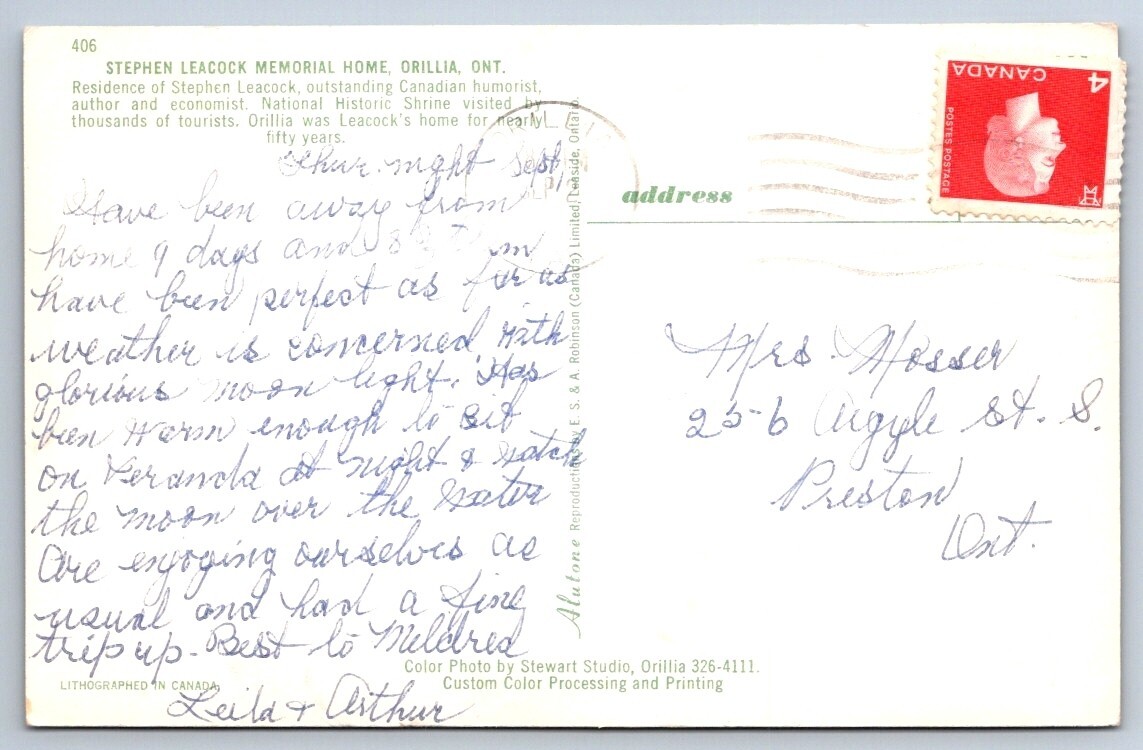 406
STEPHEN LEACOCK MEMORIAL HOME, ORILLIA, ONT.
Residence of Stephen Leacock, outstanding Canadian humorist,
author and economist. National Historic Shrine visited by
thousands of tourists. Orillia was Leacock's home for nearly
fifty years.
Thur. night Sept.
Have been away from
home 9 days and 8
have been perfect as far as
weather is concerned with
glorious moon light. Has
been warm enough to sit
on Veranda at night & watch
the moon over the water
Are enjoying ourselves as
usual and had a fine
trip up - Best to Mildred
Leila + Arthur
LITHOGRAPHED IN CANADA
Alutone Reproductions E. S. & A. Robinson (Canada) Limited, Leaside, Ontario.
Color Photo by Stewart Studio, Orillia 326-4111.
Custom Color Processing and Printing
address
CANADA
4
POSTES POSTAGE
Mrs. Mosser
256 Argyle St. S.
Preston
Ont.